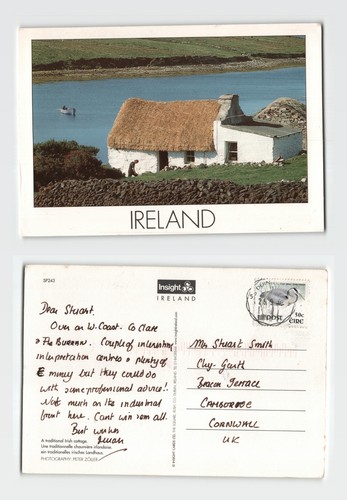 IRELAND
SP243
Insight
IRELAND
50c
EIRE
Dear Stuart.
Over on W. Coast. Co Clare
+ The Burren. Couple of interesting
interpretation centres + plenty of
€ money but they could do
with some professional advice!
Not much on the industrial
front here. Cant win 'em all.
Best wishes
A traditional Irish cottage.
Une traditionnelle chaumière irlandaise.
ein traditionelles irisches Landhaus.
PHOTOGRAPHY: PETER ZÖLLER
Mr Stuart Smith
Chy-Garth
Beacon Terrace
CAMBORNE
CORNWALL
UK